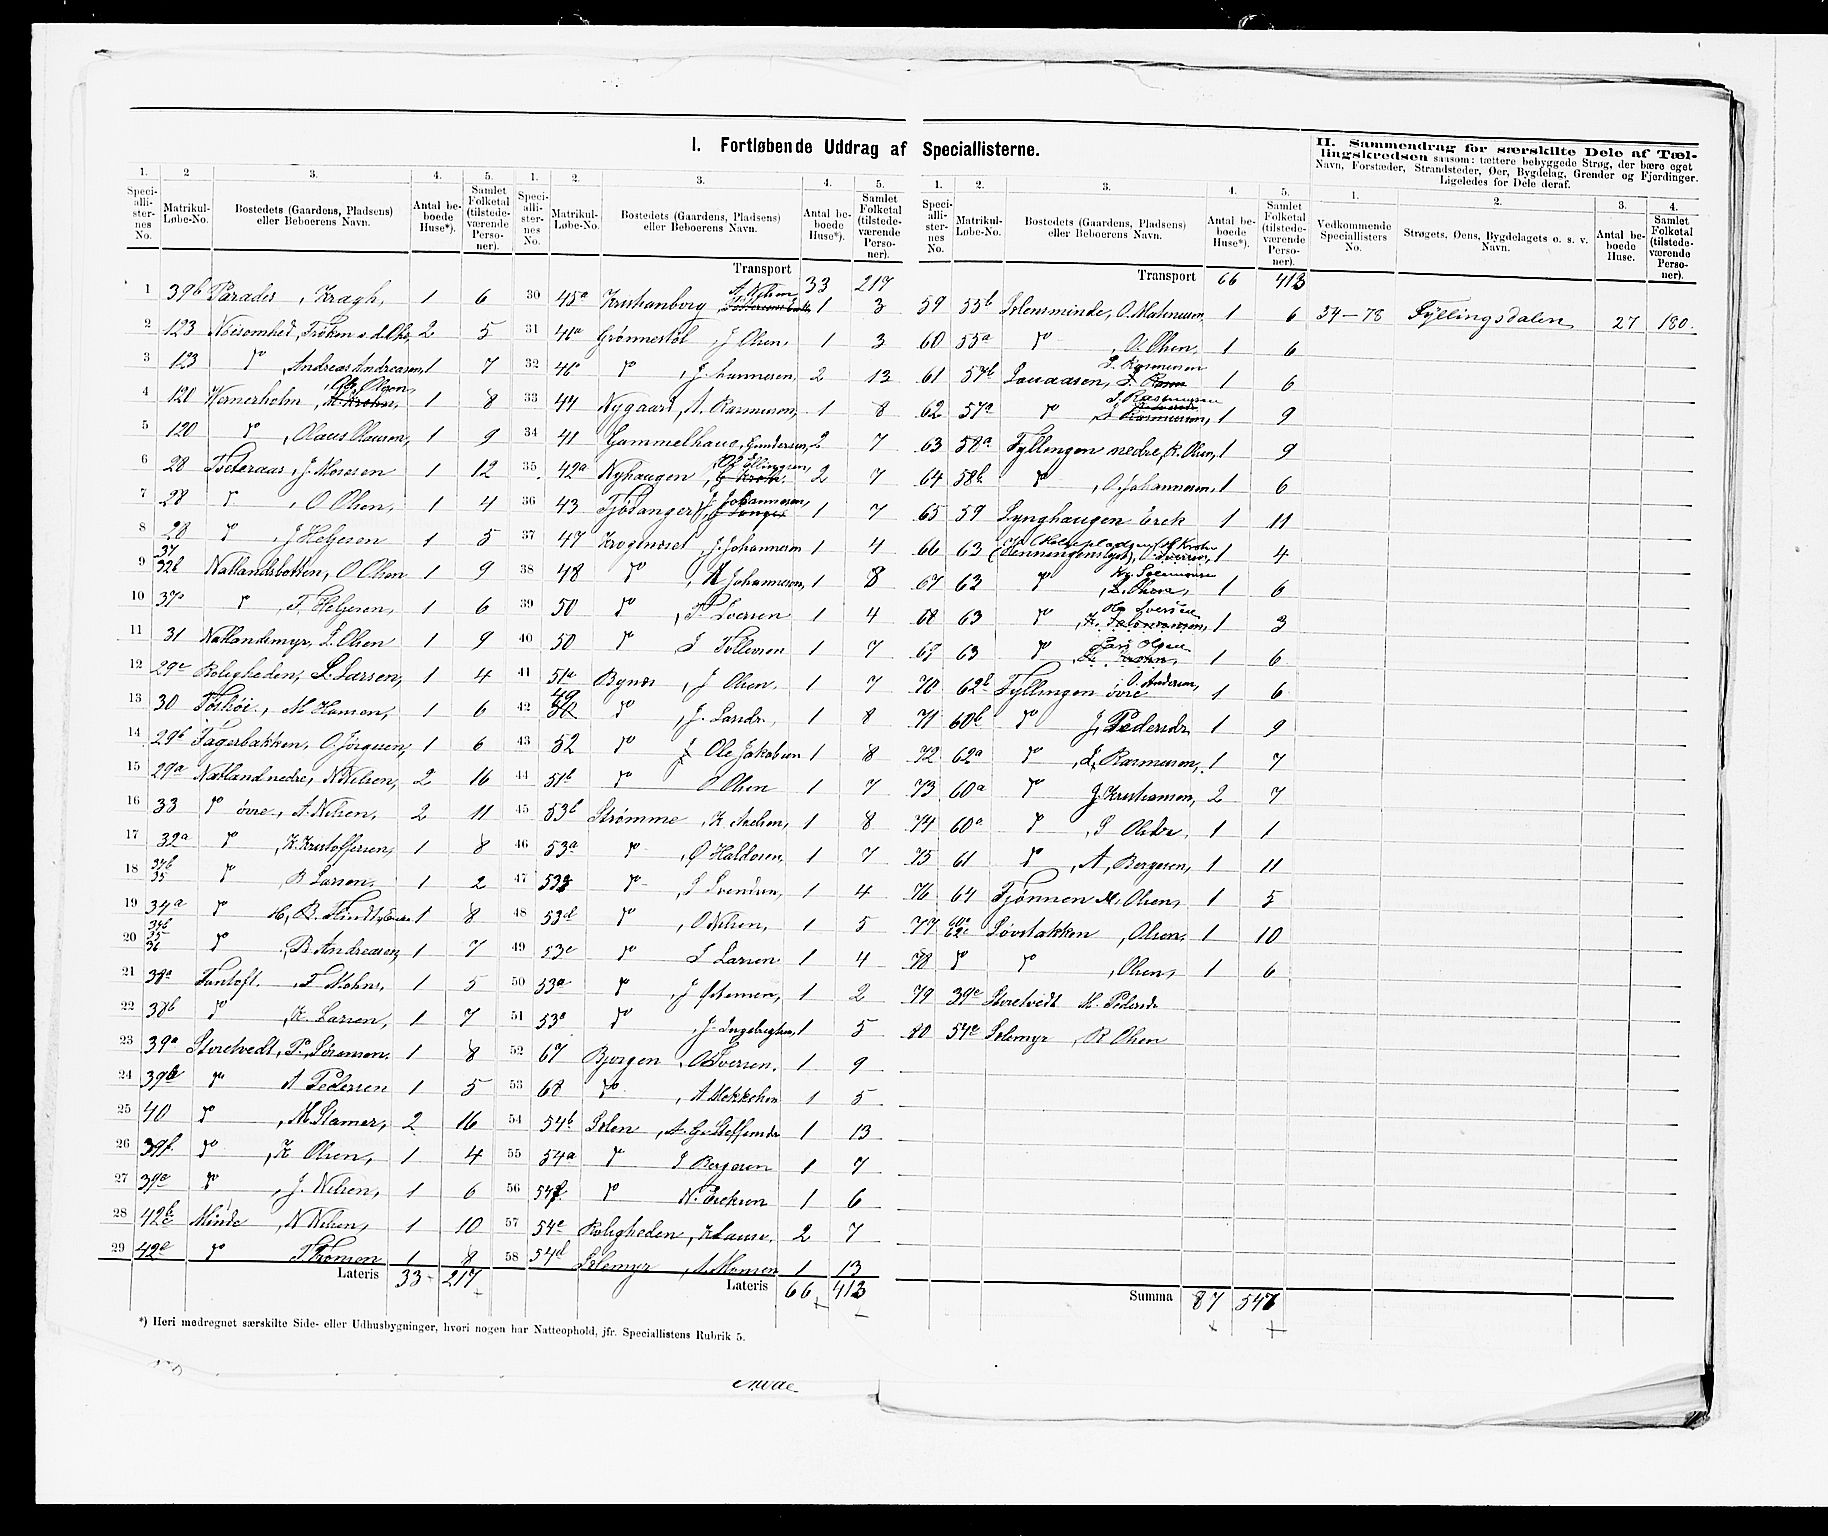 I. Fortløbende Uddrag af Speciallisterne.
II. Sammendrag for særskilte Dele af Tællingskredsen saasom: tættere bebyggede Strøg, der bære eget Navn, Forstæder, Strandsteder, Øer, Bygdelag, Grender og Fjerdinger. Ligeledes for Dele deraf.
1. 2 3. 4. 5.
Speciallisternes No. Matrikul-Løbe-No. Bostedets (Gaardens, Pladsens) eller Beboerens Navn. Antal beboede Huse*). Samlet Folketal (tilstedeværende Personer).
1 39b Paradis, Kragh, 1 6
2 123 Nøisomhed, Frøken 2 5
3 123 do, Andreas Andreasen, 1 7
4 120 Wernerholm, Ole Olsen, M. Krohn, 1 8
5 120 do, Olaus Olausen, 1 9
6 28 J. Monsen 1 12
7 28 do, O Olsen, 1 4
8 28 do, J Helgesen 1 5
9 37 32b Natlandsbotten, O Olsen 1 9
10 37a do, T. Helgesen, 1 6
11 31 Natlandsmyr, L. Olsen 1 9
12 29c Roligheden, L. Larsen, 1 4
13 30 M Hansen, 1 6
14 29b Fagerbakken, O. Jørgesen, 1 6
15 29a Natland nedre, N. Nilsen, 2 16
16 33 do övre, A. Nilsen, 2 11
17 32a do, K. Kristoffersen, 1 8
18 34b 35 do, B Larsen, 1 2
19 34a do 1 8
20 34b 35 36 do, B. Andreasen, 1 7
21 38a Fantoft, F Mohn, 1 5
22 38b do, K. Larsen, 1 7
23 39a Storetvedt, P. Sörensen, 1 8
24 39b do A Pedersen 1 5
25 40 do, M. Stamer, 2 16
26 39f do, K Olsen, 1 4
27 39e do, J. Nilsen, 1 6
28 42b c Minde, N Nilsen, 1 10
29 42e do T Tomson 1 8
Lateris 33 217
1. 2. 3. 4. 5.
Speciallisternes No. Matrikul-Løbe-No. Bostedets (Gaardens, Pladsens) eller Beboerens Navn. Antal beboede Huse*). Samlet Folketal (tilstedeværende Personer).
Transport 33 217
30 45a Kristianborg, A. Nilsen 1 3
31 46a Grønnestøl, J Olsen, 1 3
32 46a do, Johannesen, 2 13
33 44 Nygaard, A. Rasmusen, 1 8
34 41 Gammelhaug, Gundersen, 2 7
35 42a Nyhaugen, Ole Ellingsen, G Krohn. 2 7
36 43 Fjösanger, J. Johannesen, 1 7
37 47 Krognæset, J. Johannesen 1 4
38 48 do, A Johannesen, 1 8
39 50 do, P Iversen 1 4
40 50 do L Tollevsen 1 7
41 51a Bynæs, J Olsen, 1 7
42 49 do, J. Larsdr., 1 8
43 52 do Ole Jakobsen 1 8
44 51b do O Olsen 1 7
45 53b Strømme, K. Nielsen, 1 8
46 53a do, O Haldosen, 1 7
47 do, S Svendsen, 1 4
48 53d do, O Nilsen, 1 5
49 53c do L Larsen 1 4
50 53a do, J Johnsen, 1 2
51 53a do, J Ingebrigtsen, 1 5
52 67 Bjørgen, O Iversen, 1 9
53 68 do, A Mekkelsen 1 5
54 54b Sælen, A. G. Steffensdr 1 13
55 54a do S Bergesen 1 7
56 54f do N. Erichsen 1 6
57 54e Roligheden, K Lausen, 2 7
58 54d Sælemyr, A. Monsen 1 13
Lateris 66 413
1. 2. 3. 4. 5.
Speciallisternes No. Matrikul-Løbe-No. Bostedets (Gaardens, Pladsens) eller Beboerens Navn. Antal beboede Huse*). Samlet Folketal (tilstedeværende Personer).
Transport 66 413
59 55b Sælensminde, O. Mathiesen, 1 6
60 55a do, O. Olsen, 1 6
61 57b Lauaasen, L. Rasmusen 1 6
62 57a do, L Rasmusen 1 9
63 58a Fyllingen nedre, R. Olsen, 1 9
64 58b do, O. Johannesen, 1 6
65 59 Lynghaugen Erik 1 11
66 63 1 4
67 63 do 1 6
68 63 do 1 3
69 63 do Lars Olsen 1 6
70 62b Fyllingen övre O. Andersen, 1 6
71 60b do J. Pedersdr 1 9
72 62a do, L. Rasmusen, 1 7
73 60a do J. Kristiansen, 2 7
74 60a do, S Olsdr, 1 1
75 61 do, A, Bergesen, 1 11
76 64 Fjønnen M. Olsen, 1 5
77 60c 62c Løvstakken, Olsen, 1 10
78 do do, Olsen, 1 6
79 39c Storetvedt M. Pedersdr
80 54c Sælemyr, R Olsen
Summa 87 547
1. 2. 3. 4.
Vedkommende Speciallisters No. Strøgets, Øens, Bygdelagets o. s. v. Navn. Antal beboede Huse. Samlet Folketal (tilstedeværende Personer).
54—78 Fyllingsdalen 27 180.
*) Heri medregnet særskilte Side- eller Udhusbygninger, hvori nogen har Natteophold, jfr. Speciallistens Rubrik 5.